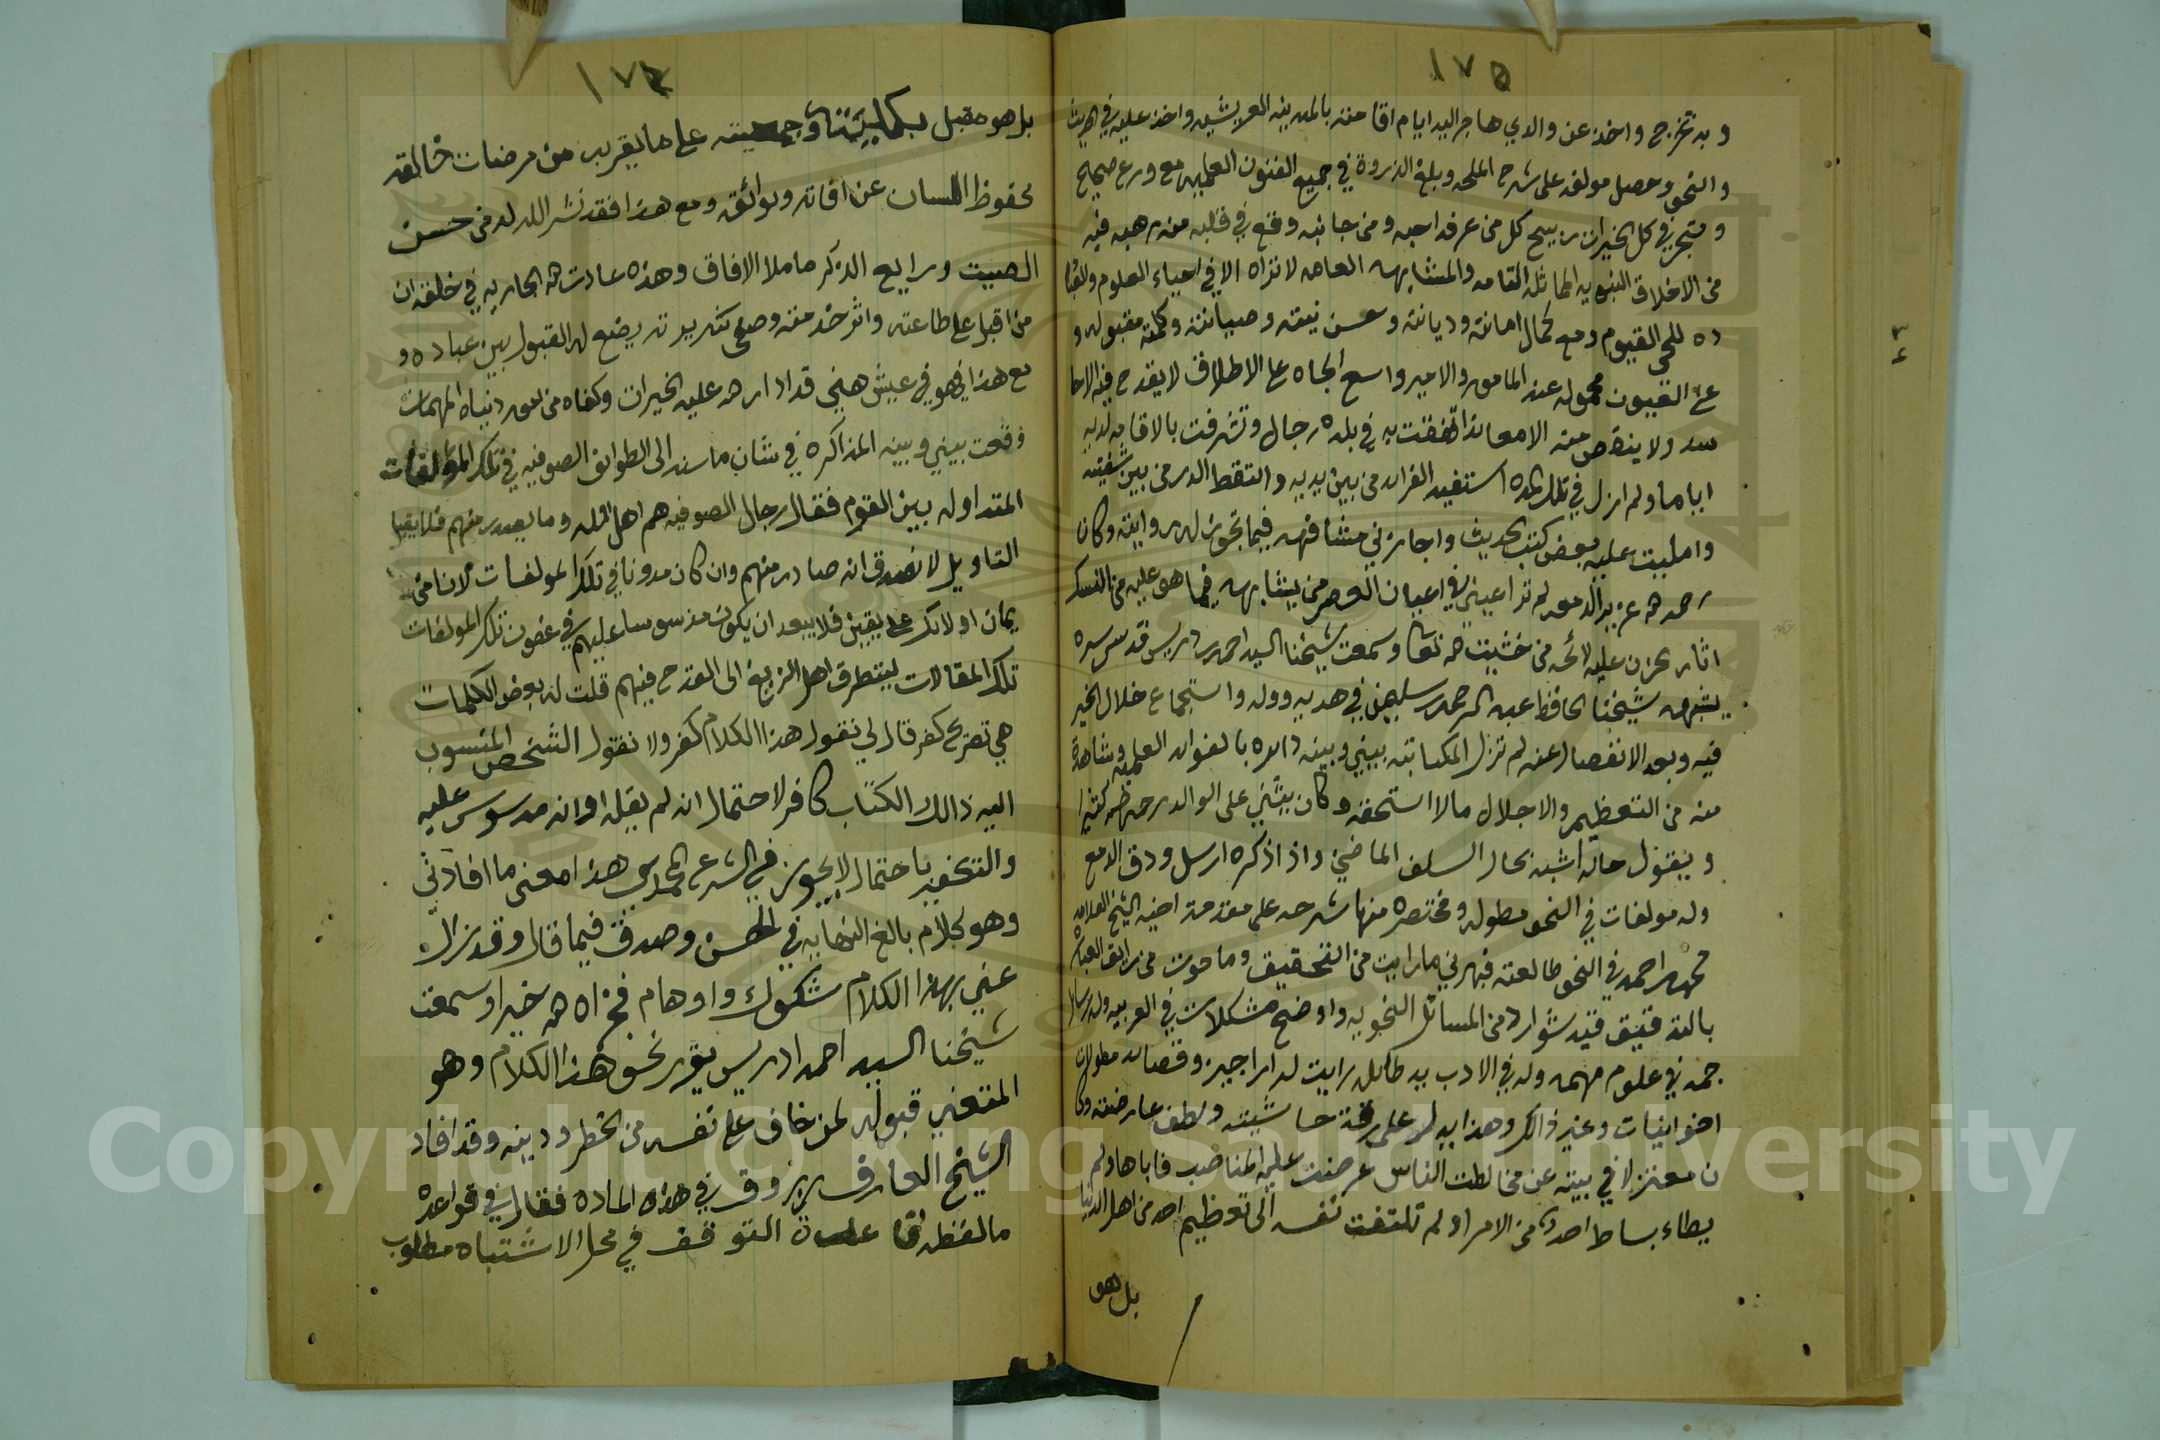 ١٧٥
وبه تخرج واخذ عن والدي هاجر اليه ايام اقامته بالمدينه العريشيه واخذ عليه في الحديث
والنحو وحصل مولفه على شرح الملحه وبلغ الذروة في جميع الفنون العلميه مع ورع صحيح
و متجر في كل الخيرات ربيح كل من عرفه احبه ومن جانبه وقع في قلبه منه رهبه فيه
من الاخلاق النبويه المماثله التامه والمشابهه العامه لا تراه الا في احياء العلوم
ده للحي القيوم ومع كمال امانته وديانته وحسن نيته وصيانته وكلمته مقبوله و
على العيون محموله عند المامور والامير واسع الجاه على الاطلاق لا يقدح فيه
ولا ينقص منه الامعاند اتفقت به في بلده رجال وتشرفت بالاقامه لديه
اياما ولم ازل في تلك المده استفيد الفرائد من بين يديه والتقط الدر من بين شفتيه
وامليت عليه بعض كتب الحديث واجازني مشافهه فيما تجوز له روايته وكان
رحمه الله غزير الدمعه لم تر عيني في اعيان العصر من يشابهه فيما هو عليه من التنسك
اثار الحزن عليه لائحه من خشيت الله تعالى وسمعت شيخنا السيد احمد ادريس قدس سره
يشبهه شيخنا الحافظ عبد الرحمن سليمن في هديه ودله واستجماع خلال الخير
فيه وبعد الانفصال عنه لم تزل المكاتبه بيني وبينه دائره بالفوائد العلميه وشاهدة
منه من التعظيم والاجلال مالا استحقه وكان يثني على الوالد رحمه الله كثيرا
ويقول حاله اشبه بحال السلف الماضي واذا ذكره ارسل ودق الدمع
وله مولفات في النحو مطوله ومختصره منها شرحه على مقدمة اخيه الشيخ العلامه
محمد احمد في النحو طالعته فبهرني ما رايت من التحقيق وما حوت من رائق العباره
بالتدقيق قيد شوارد من المسائل النحويه واوضح مشكلات في العربيه وله رسائل
جمه في علوم مهمه وله في الادب يد طائله رايت له اراجيز وقصائد مطولات
اخوانيات وغير ذالك وهذا يدل على رقة حاشيته ولطف عارضته وكا
ن معتزلا في بيته عن مخالطت الناس عرضت عليه المناصب فاباها ولم
يطاء بساط احد من الامراء ولم تلتفت نفسه الى تعظيم احد من اهل الدنيا
بل هو
١٧٤
بل هو مقبل بكليته وجمعيته على ما يقربه من مرضات خالقه
محفوظ اللسان عن افاته وبوائقه ومع هذا فقد نشر الله له من حسن
الصيت ورايع الذكر ما ملا الافاق وهذه عادت الله الجاريه في خلقه ان
من اقبل على طاعته واثر خدمته وصفى سريرته يضع له القبول بين عباده و
مع هذا فهو في عيش هني قد ادار الله عليه الخيرات وكفاه من امور دنياه المهمات
وقعت بيني وبينه المذاكره في شان ما سند الى الطوائف الصوفيه في تلك المولفات
المتداوله بين القوم فقال رجال الصوفيه هم اهل الله وما يصدر منهم
التاويل لا نصدق انه صادر منهم وان كان مدونا في تلك المولفات لانا من
يمان اولائك على يقين فلا يبعد ان يكون مدسوسا عليهم في غضون تلك المولفات
تلك المقالات ليتطرق اهل الزيغ الى القدح فيهم قلت له بعض الكلمات
هي تصريح كفر قال لي نقول هذا الكلام كفر ولا نقول الشخص المنسوب
اليه ذالك الكتاب كافر لاحتمال انه لم يقله او انه مدسوس عليه
والتكفير باحتمال لا يجوز في الشرع المحمدي هذا معنى ما افادني
وهو كلام بالغ النهايه في الحسن وصدق فيما قال وقد نزال
عني بهذا الكلام شكوك واوهام فجزاه الله خيرا وسمعت
شيخنا السيد احمد ادريس يقرر نحو هذا الكلام وهو
المتعين قبوله لمن خاف على نفسه من الخطر ودينه وقد افاد
الشيخ العارف زروق في هذه الماده فقال في قواعده
ما لفظه قاعدة التوقف في محل الاشتباه مطلوب
Copyright © King Saud University